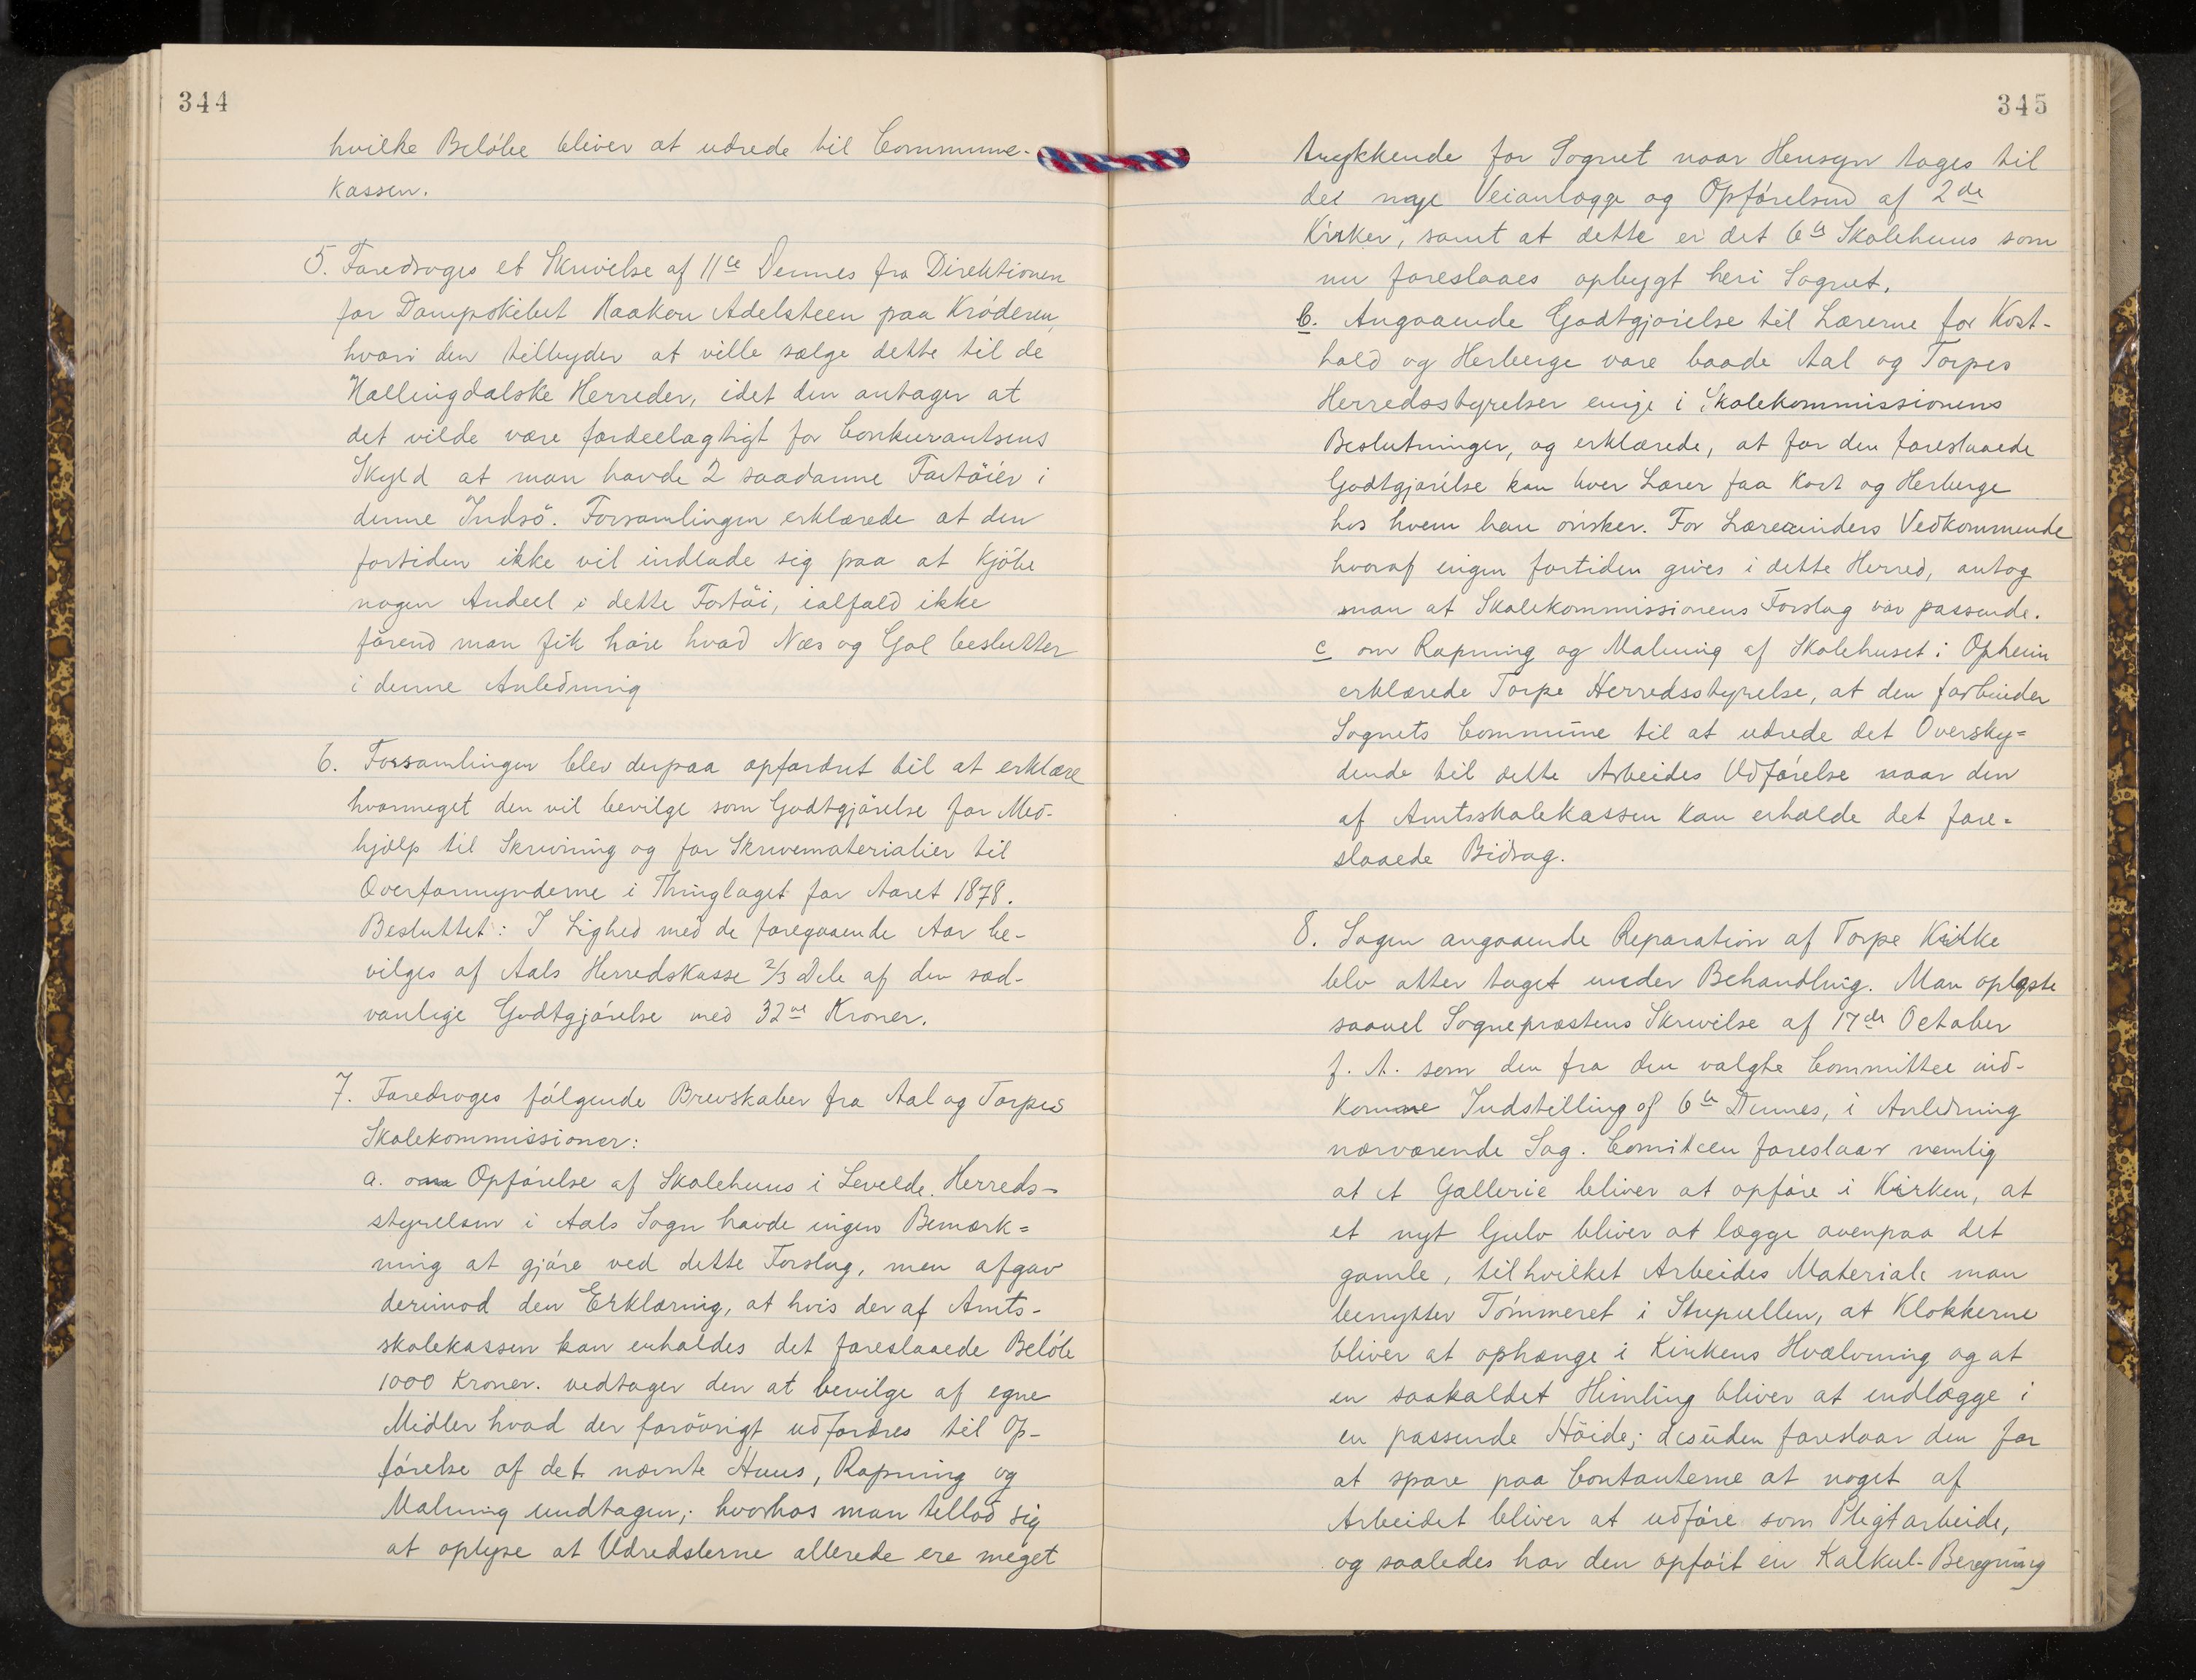 344
hvilke Beløbe bliver at udrede til Commune-
kassen.
5. Foredroges et Skrivelse af 11te Dennes fra Direktionen
for Dampskibet Haakon Adelsteen paa Krøderen,
hvori den tilbyder at ville sælge dette til de
Hallingdalske Herreder, idet den antager at
det vilde være fordeelagtigt for Conkurantsens
Skyld at man havde 2 saadanne Fartøier i
denne Indsø. Forsamlingen erklærede at den
fortiden ikke vil indlade sig paa at Kjøbe
nogen Andeel i dette Fartøi, ialfald ikke
førend man fik høre hvad Næs og Gol beslutter
i denne Anledning
6. Forsamlingen blev derpaa opfordret til at erklære
hvormeget den vil bevilge som Godtgjørelse for Med-
hjælp til Skrivning og for Skrivematerialier til
Overformynderne i Thinglaget for Aaret 1878.
Besluttet: I Lighed med de foregaaende Aar be-
vilges af Aals Herredskasse 2/3 Dele af den sæd-
vanlige Godtgjørelse med 32 Kroner.
7. Foredroges følgende Brevskaber fra Aal og Torpes
Skolekommissioner:
a. om Opførelse af Skolehuus i Levelde. Herreds-
styrelsen i Aals Sogn havde ingen Bemærk=
ning at gjøre ved dette Forslag, men afgav
derimod den Erklæring, at hvis der af Amts-
skolekassen kan erholdes det foreslaaede Beløb
1000 Kroner. vedtager den at bevilge af egne
Midler hvad der forøvrigt udfordres til Op-
førelse af det nævnte Huus, Rapning og
Malning undtagen; hvorhos man tillod sig
at oplyse at Udredslerne allerede ere meget
345
trykkende for Sognet naar Hensyn tages til
det nye Veianlægge og Opførelsen af 2de
Kirker, samt at dette er det 6te Skolehuus som
nu foreslaaes opbygt heri Sognet.
b. Angaaende Godtgjørelse til Lærerne for Kost-
hold og Herberge vare baade Aal og Torpes
Herredsstyrelser enige i Skolekommissionens
Beslutninger, og erklærede, at for den foreslaaede
Godtgjørelse kan hver Lærer faa Kost og Herberge
hos hvem han ønsker. For Lærerinders Vedkommende
hvoraf ingen fortiden gives i dette Herred, antog
man at Skolekommissionens Forslag var passende.
c om Rapning og Malning af Skolehuset i Opheim
erklærede Torpe Herredsstyrelse, at den forbinder
Sognets Commune til at udrede det Oversky=
dende til dette Arbeides Udførelse naar den
af Amtsskolekassen kan erholde det fore-
slaaede Bidrag.
8. Sagen angaaende Reparation af Torpe Kirke
blev atter taget under Behandling. Man oplæste
saavel Sognepræstens Skrivelse af 17de October
f. A. som den fra den valgte Committee ind-
komne Indstilling af 6te Dennes, i Anledning
nærværende Sag. Comiteen foreslaar nemlig
at et Gallerie bliver at opføre i Kirken, at
et nyt Gulv bliver at lægge ovenpaa det
gamle, til hvilket Arbeides Materiale man
benytter Tømmeret i Stupullen, at Klokkerne
bliver at ophænge i Kirkens Hvælvning og at
en saakaldet Himling bliver at indlægge i
en passende Høide; desuden foreslaar den for
at spare paa Contanterne at noget af
Arbeidet bliver at udføre som Pligtarbeide,
og saaledes har den opført en Kalkul-Beregning